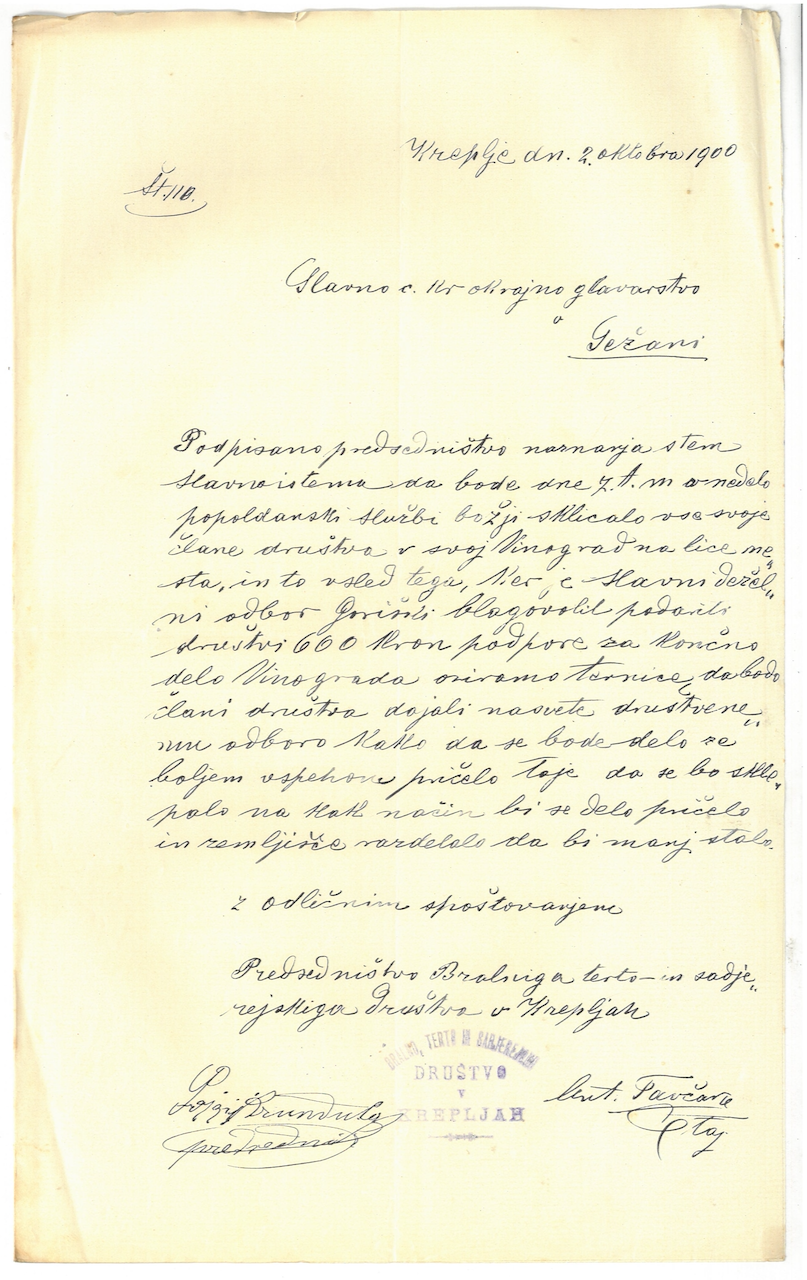 Kreplje dn. 2. oktobra 1900
Št. 110.
Slavno c. kr okrajno glavarstvo
v
Sežani
Podpisano predsedništvo naznanja s tem
slavno istema da bode dne 7. t. m v nedelo
popoldanski službi božji sklicalo vse svoje
člane društva v svoj Vinograd na lice me„
sta, in to vsled tega, ker je slavni dežel„
ni odbor Goriški blagovolil podariti
društvi 600 kron podpore za končno
delo Vinograda oziramo ternice, da bodo
člani društva dajali nasvete društvene„
mu odboro kako da se bode delo ze
boljem vspehom pričelo toje da se bo skle„
palo na kak način bi se delo pričelo
in zemljišče razdelalo da bi manj stalo.
z odličnim spoštovanjem
Predsedništvo Bralniga terto- in sadje„
rejskiga Društva v Krepljah
BRALNO, TERTO IN SADJEREJSKO
DRUŠTVO
V
KREPLJAH
Ant. Favčar
predsednik